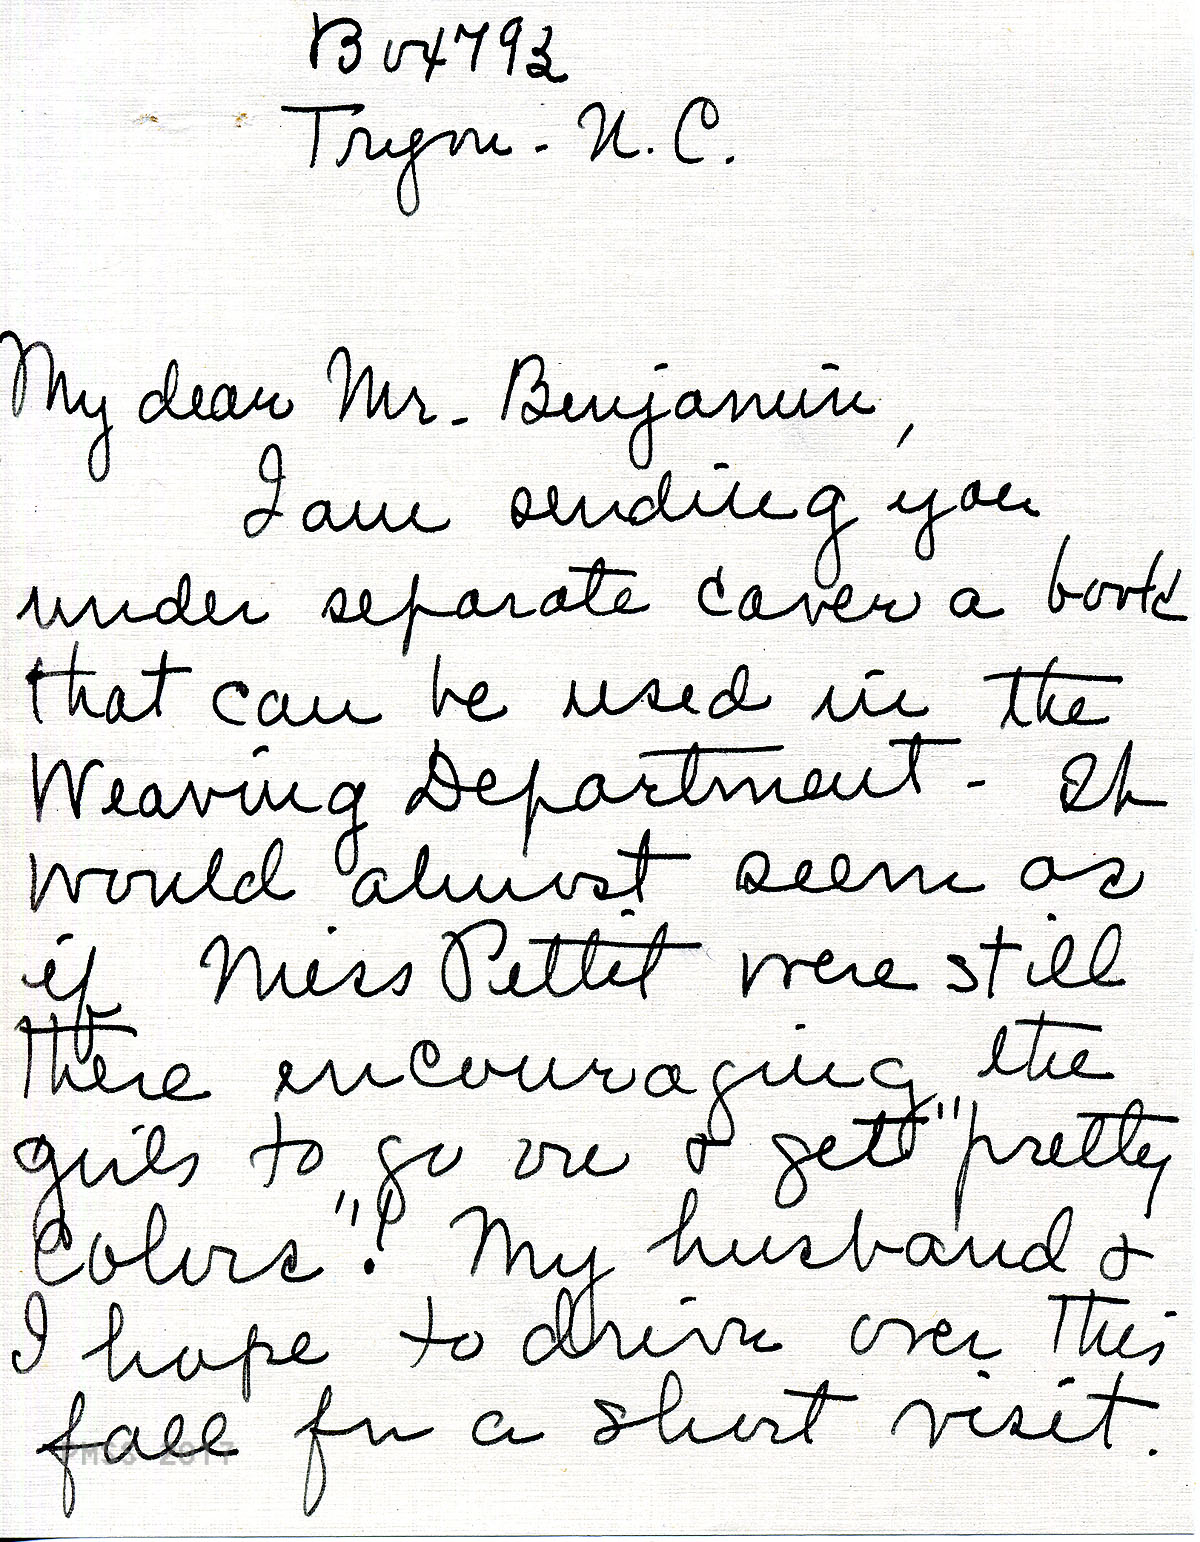 Box 793
Tryon - N. C.
My dear Mr. Benjamin,
I am sending you
under separate cover a book
that can be used in the
Weaving Department - It
would almost seem as
if Miss Pettit were still
there encouraging the
girls to go on & get "pretty
colors"! My husband &
I hope to drive over this
fall for a short visit.
PMSS 2017